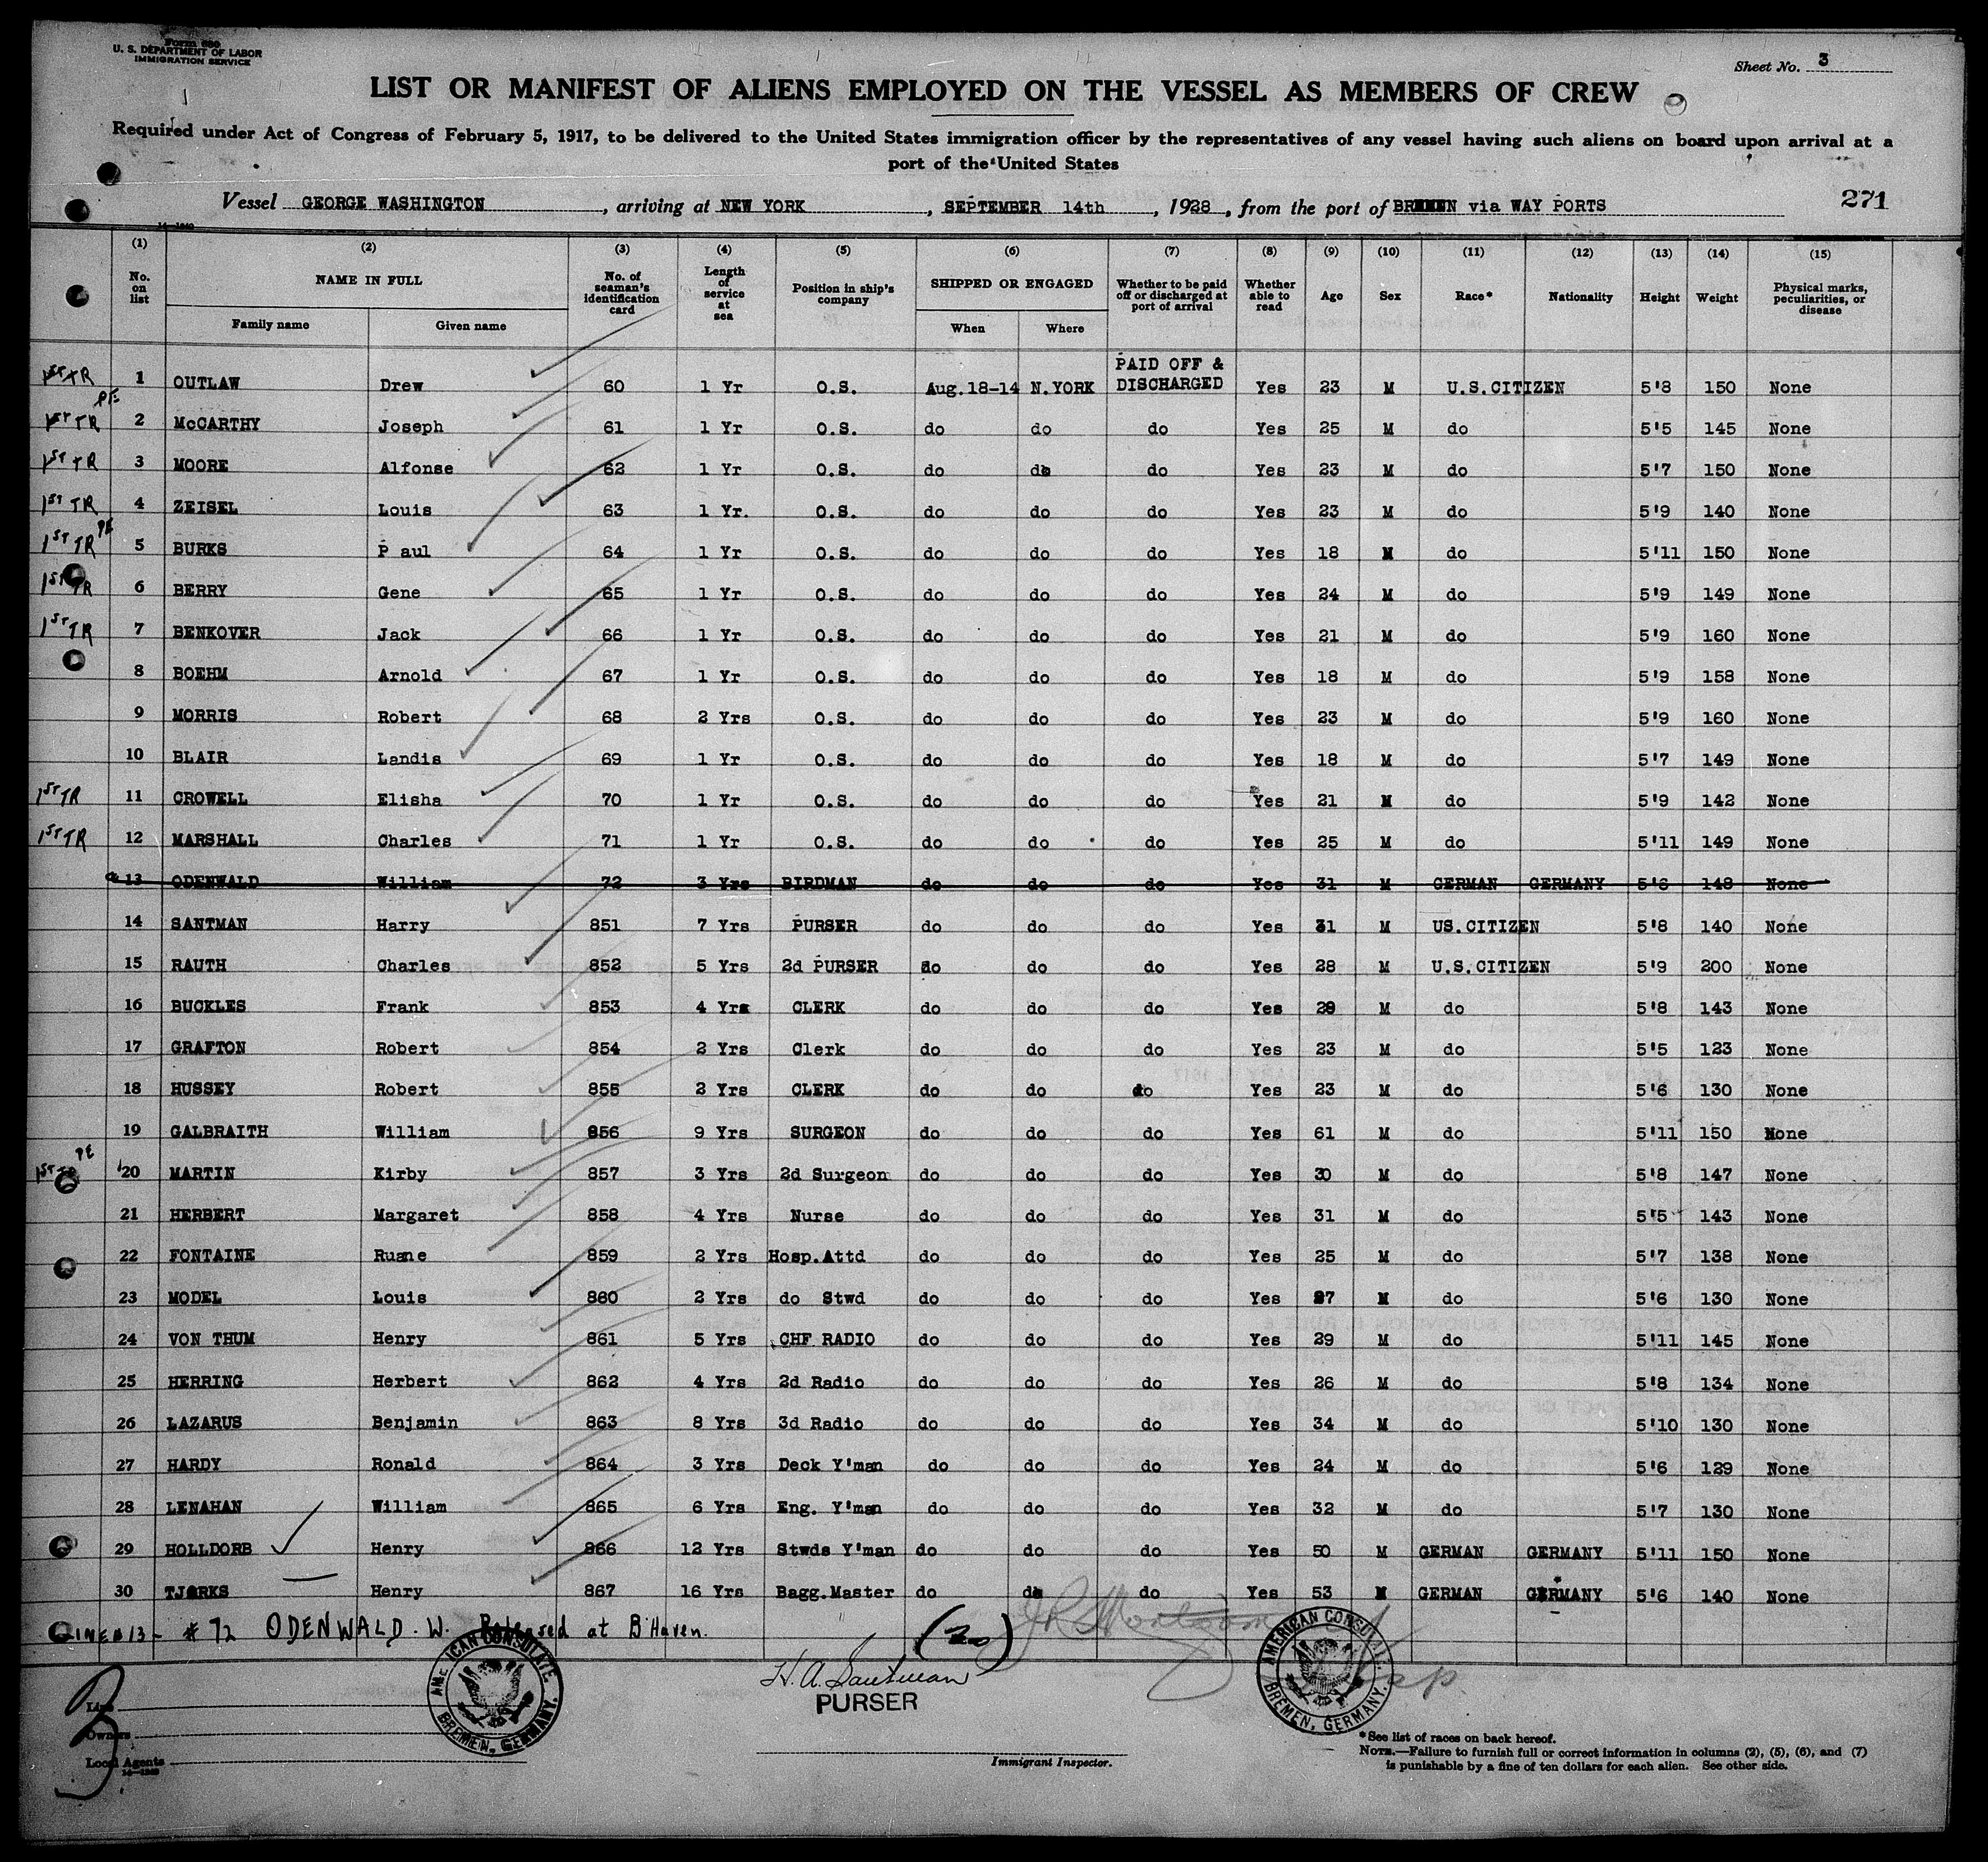 Form 689
U. S. DEPARTMENT OF LABOR
IMMIGRATION SERVICE
Sheet No. 3
LIST OR MANIFEST OF ALIENS EMPLOYED ON THE VESSEL AS MEMBERS OF CREW
Required under Act of Congress of February 5, 1917, to be delivered to the United States immigration officer by the representatives of any vessel having such aliens on board upon arrival at a
port of the United States
Vessel GEORGE WASHINGTON, arriving at NEW YORK, SEPTEMBER 14th, 1928, from the port of BREMEN via WAY PORTS 271
(1) (2) (3) (4) (5) (6) (7) (8) (9) (10) (11) (12) (13) (14) (15)
No. on list NAME IN FULL Family name Given name No. of seaman's identification card Length of service at sea Position in ship's company SHIPPED OR ENGAGED When Where Whether to be paid off or discharged at port of arrival Whether able to read Age Sex Race* Nationality Height Weight Physical marks, peculiarities, or disease
1ST TR 1 OUTLAW Drew 60 1 Yr O.S. Aug.18-14 N.YORK PAID OFF & DISCHARGED Yes 23 M U.S.CITIZEN 5'8 150 None
1ST TR PE 2 McCARTHY Joseph 61 1 Yr O.S. do do do Yes 25 M do 5'5 145 None
1ST TR 3 MOORE Alfonse 62 1 Yr O.S. do do do Yes 23 M do 5'7 150 None
1ST TR 4 ZEISEL Louis 63 1 Yr. O.S. do do do Yes 23 M do 5'9 140 None
1ST TR PE 5 BURKS P aul 64 1 Yr O.S. do do do Yes 18 M do 5'11 150 None
1ST TR 6 BERRY Gene 65 1 Yr O.S. do do do Yes 24 M do 5'9 149 None
1ST TR 7 BENKOVER Jack 66 1 Yr O.S. do do do Yes 21 M do 5'9 160 None
8 BOEHM Arnold 67 1 Yr O.S. do do do Yes 18 M do 5'9 158 None
9 MORRIS Robert 68 2 Yrs O.S. do do do Yes 23 M do 5'9 160 None
10 BLAIR Landis 69 1 Yr O.S. do do do Yes 18 M do 5'7 149 None
1ST TR 11 CROWELL Elisha 70 1 Yr O.S. do do do Yes 21 M do 5'9 142 None
1ST TR 12 MARSHALL Charles 71 1 Yr O.S. do do do Yes 25 M do 5'11 149 None
13 ODENWALD William 72 3 Yrs BIRDMAN do do do Yes 31 M GERMAN GERMANY 5'6 148 None
14 SANTMAN Harry 851 7 Yrs PURSER do do do Yes 31 M US.CITIZEN 5'8 140 None
15 RAUTH Charles 852 5 Yrs 2d PURSER do do do Yes 28 M U.S.CITIZEN 5'9 200 None
16 BUCKLES Frank 853 4 Yrs CLERK do do do Yes 28 M do 5'8 143 None
17 GRAFTON Robert 854 2 Yrs Clerk do do do Yes 23 M do 5'5 123 None
18 HUSSEY Robert 855 2 Yrs CLERK do do do Yes 23 M do 5'6 130 None
19 GALBRAITH William 856 9 Yrs SURGEON do do do Yes 61 M do 5'11 150 None
1ST TR PE 20 MARTIN Kirby 857 3 Yrs 2d Surgeon do do do Yes 30 M do 5'8 147 None
21 HERBERT Margaret 858 4 Yrs Nurse do do do Yes 31 M do 5'5 143 None
22 FONTAINE Ruane 859 2 Yrs Hosp.Attd do do do Yes 25 M do 5'7 138 None
23 MODEL Louis 860 2 Yrs do Stwd do do do Yes 27 M do 5'6 130 None
24 VON THUM Henry 861 5 Yrs CHF RADIO do do do Yes 29 M do 5'11 145 None
25 HERRING Herbert 862 4 Yrs 2d Radio do do do Yes 26 M do 5'8 134 None
26 LAZARUS Benjamin 863 8 Yrs 3d Radio do do do Yes 34 M do 5'10 130 None
27 HARDY Ronald 864 3 Yrs Deck Y'man do do do Yes 24 M do 5'6 129 None
28 LENAHAN William 865 6 Yrs Eng. Y'man do do do Yes 32 M do 5'7 130 None
29 HOLLDORB Henry 866 12 Yrs Stwds Y'man do do do Yes 50 M GERMAN GERMANY 5'11 150 None
30 TJARKS Henry 867 16 Yrs Bagg.Master do do do Yes 53 M GERMAN GERMANY 5'6 140 None
LINE # 13 - # 72 ODENWALD. W. Released at B'Haven.
(30)
H. A. Santman
PURSER
AMERICAN CONSULATE, BREMEN, GERMANY.
AMERICAN CONSULATE, BREMEN, GERMANY.
Line
Owners
Local Agents
Immigrant Inspector.
*See list of races on back hereof.
NOTE.—Failure to furnish full or correct information in columns (2), (5), (6), and (7)
is punishable by a fine of ten dollars for each alien. See other side.